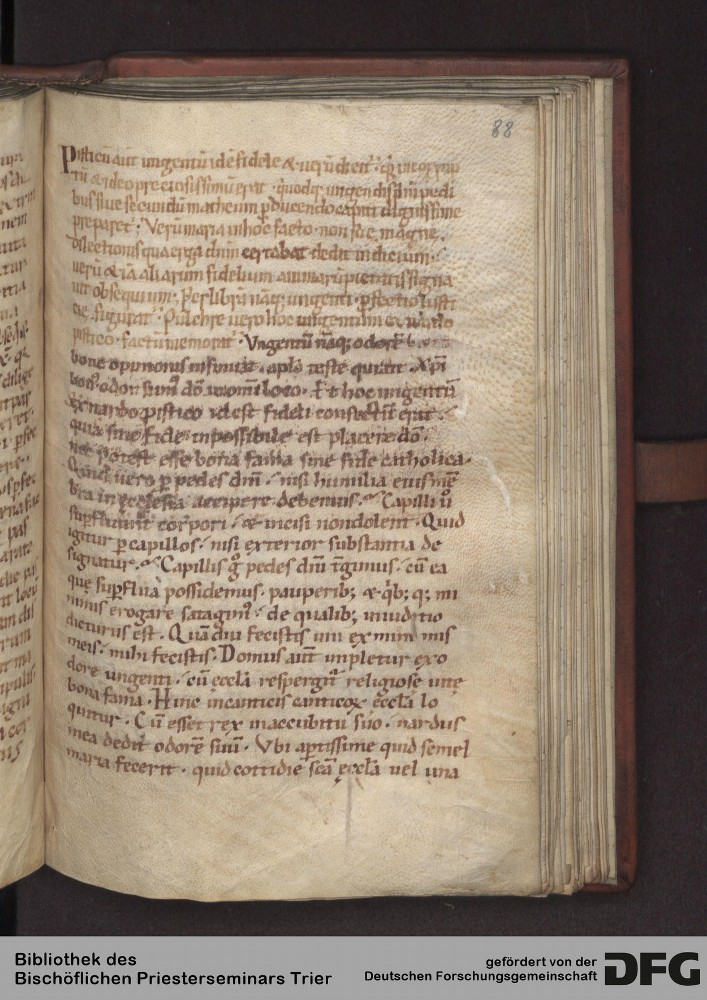 88
Pisticū aut̄ ungentū id ē fidele & uerū dicit̄
tū & ideo preciosissimū erat · quodq; ungendis dn̄i pedi
bus siue secundū matheum perducendo capiti dignissime
preparet᷑ · Verū maria in hoc facto · non suę magnę
dilectionis quā erga dn̄m certabat · dedit indicium ·
uerū & iā aliarum fidelium animarū pietatis signa
uit obsequium · Per librā nāq; ungenti · perfectio iusti
cię figurat᷑ · Pulchre uero hoc ungentum ex nardo
pistico · factū memorat᷑ · Vngentū nāq; odorē
bonę opinionis insinuat · apl̄o teste qui ait · Xp̄i
bonꝰ odor sumꝰ dō in omni loco · Et hoc ungentū
ex nardo pistico id est fideli confectū erat ·
quia sine fide inpossibile est placere dō ·
nec potest esse bona fama sine fide catholica ·
Quid uero ꝑ pedes dn̄i · nisi humilia eius mē
bra in ecclesia accipere debemus · Capilli ū
supfluunt corpori · & incisi non dolent · Quid
igitur ꝑ capillos · nisi exterior substantia de
signatur · Capillis g̊ pedes dn̄i t̄gimus · cū ea
quę supflua possidemus · pauperib; & q̇b; q; mi
nimis erogare satagimꝰ · de qualib; in iuditio
dicturus est · Quādiu fecistis uni ex minimis
meis · mihi fecistis · Domus aut̄ impletur exo
dore ungenti · cū eccl̄a respergit᷑ religiosę uitę
bona fama · Hinc in canticis canticoꝝ eccl̄a lo
quitur · Cū esset rex in accubitu suo · nardus
mea dedit odorē suū · Vbi apertissime quid semel
maria fecerit · quid cottidie sc̄a eccl̄a uel una
Bibliothek des
Bischöflichen Priesterseminars Trier
gefördert von der
Deutschen Forschungsgemeinschaft
DFG